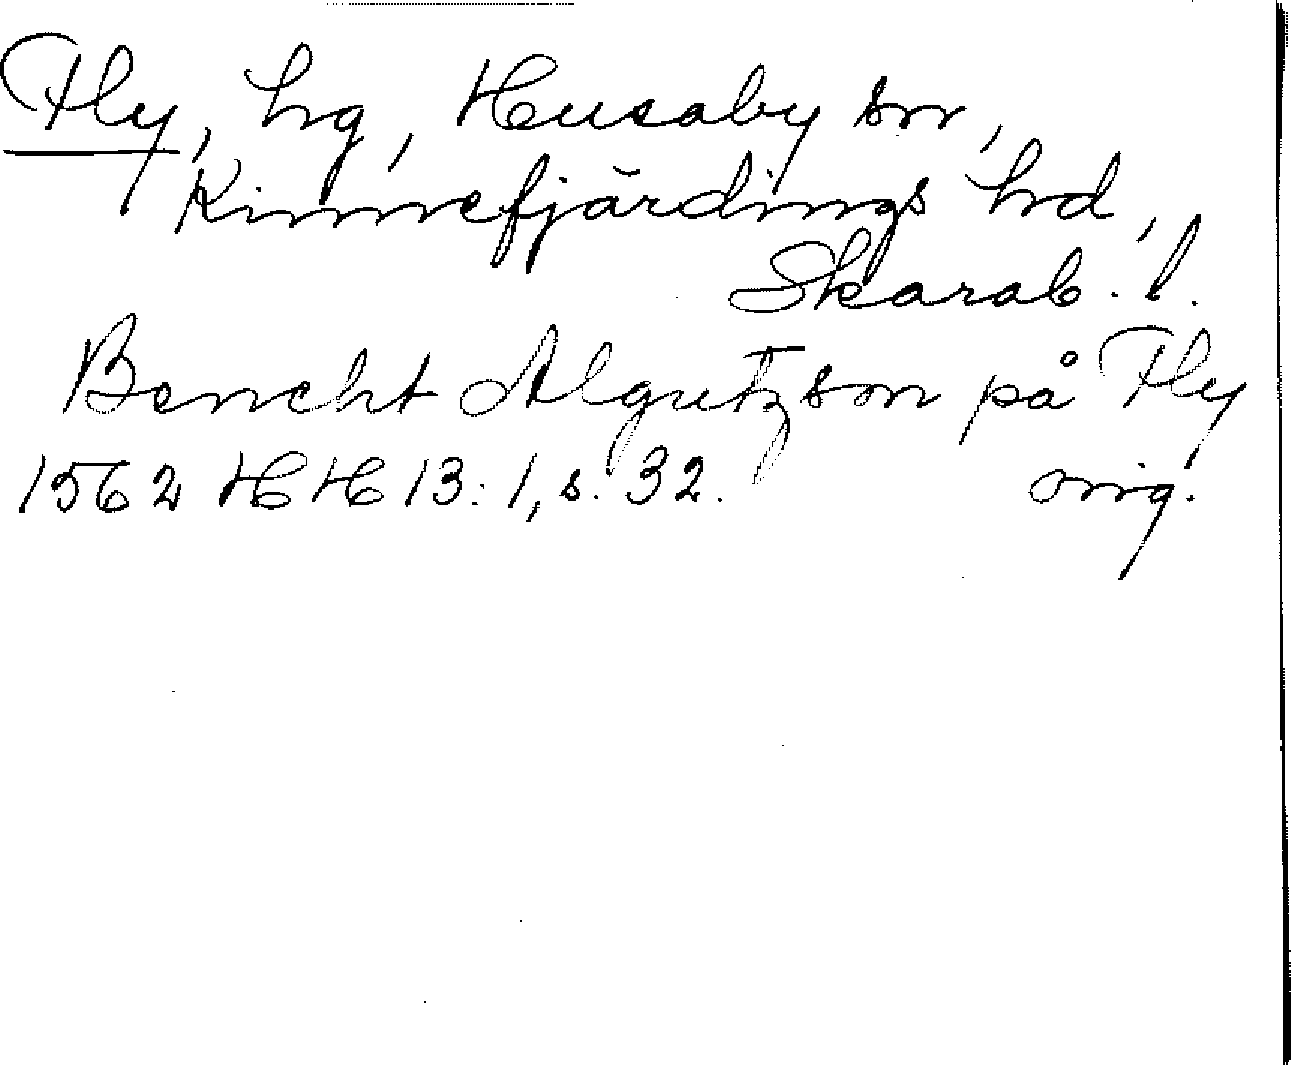 Fly, hg, Husaby sn,
Kinnefjärdings hd,
Skarab. l.
Bencht Algutzson på Fly
1562 HH 13: 1, s. 32. orig.